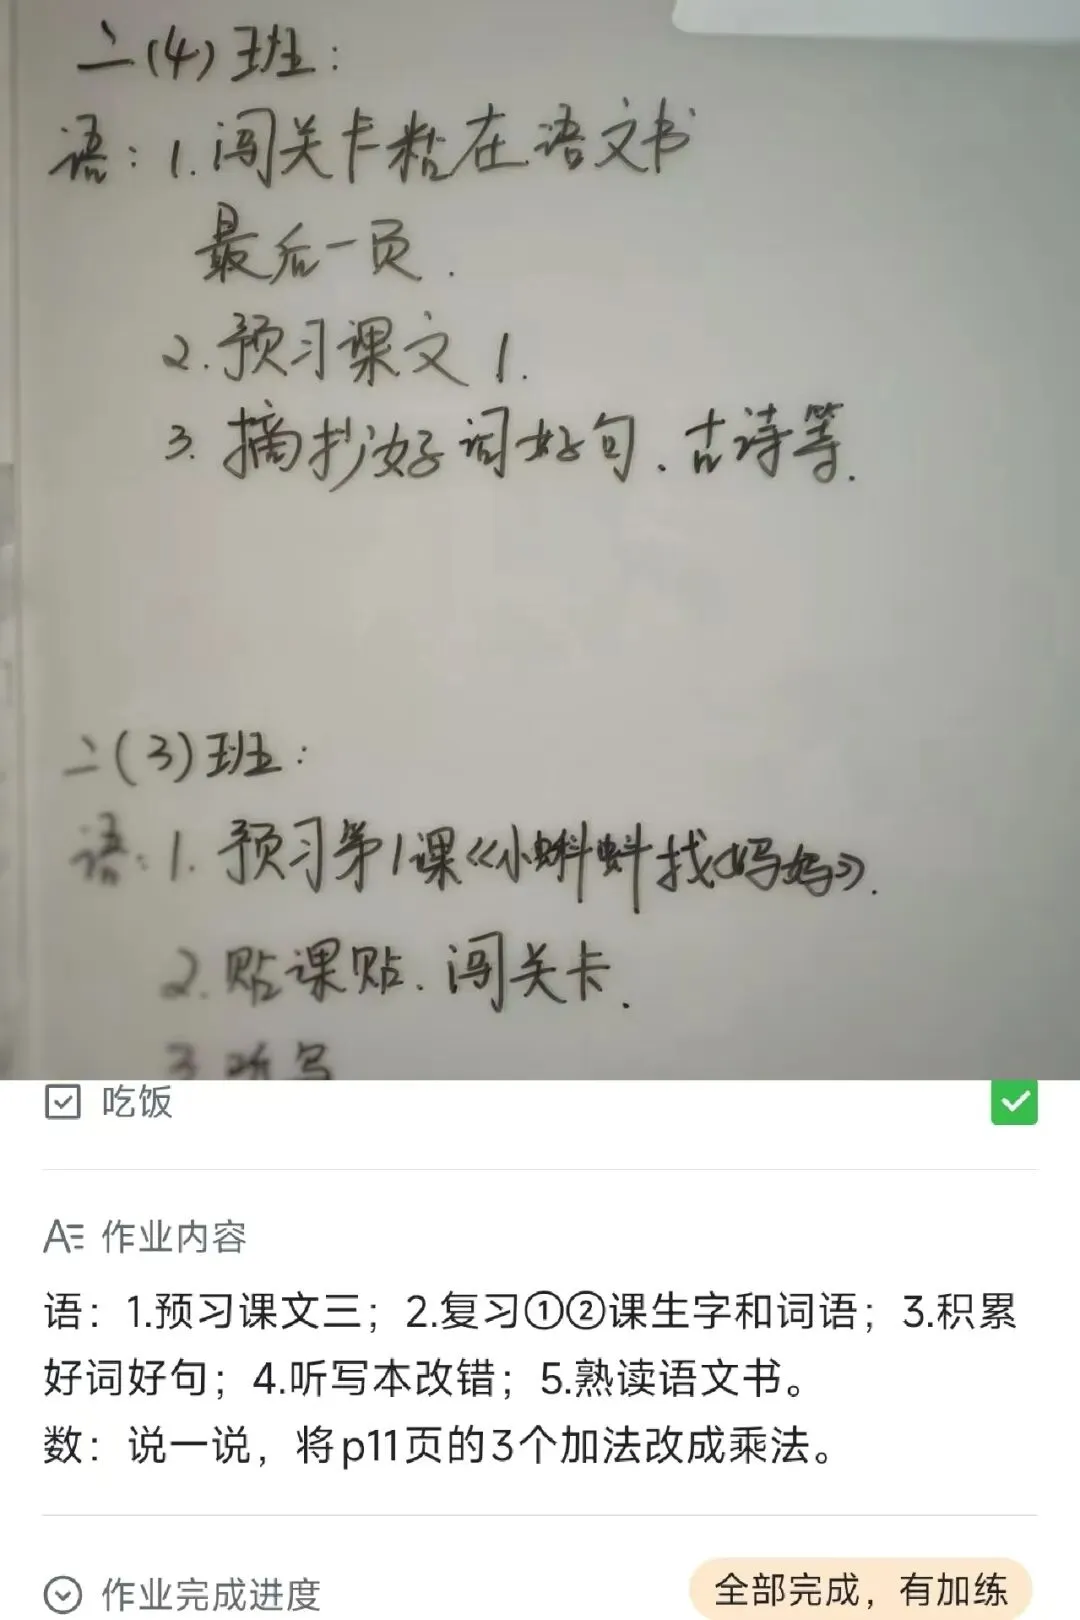 二(4)班:
语: 1. 闯关卡粘在语文书
最后一页.
2. 预习课文1.
3. 摘抄好词好句. 古诗等.
二(3)班:
语: 1. 预习第1课《小蝌蚪找妈妈》.
2. 贴课贴. 闯关卡.
3. 听写
吃饭
作业内容
语：1.预习课文三；2.复习①②课生字和词语；3.积累
好词好句；4.听写本改错；5.熟读语文书。
数：说一说，将p11页的3个加法改成乘法。
作业完成进度
全部完成，有加练